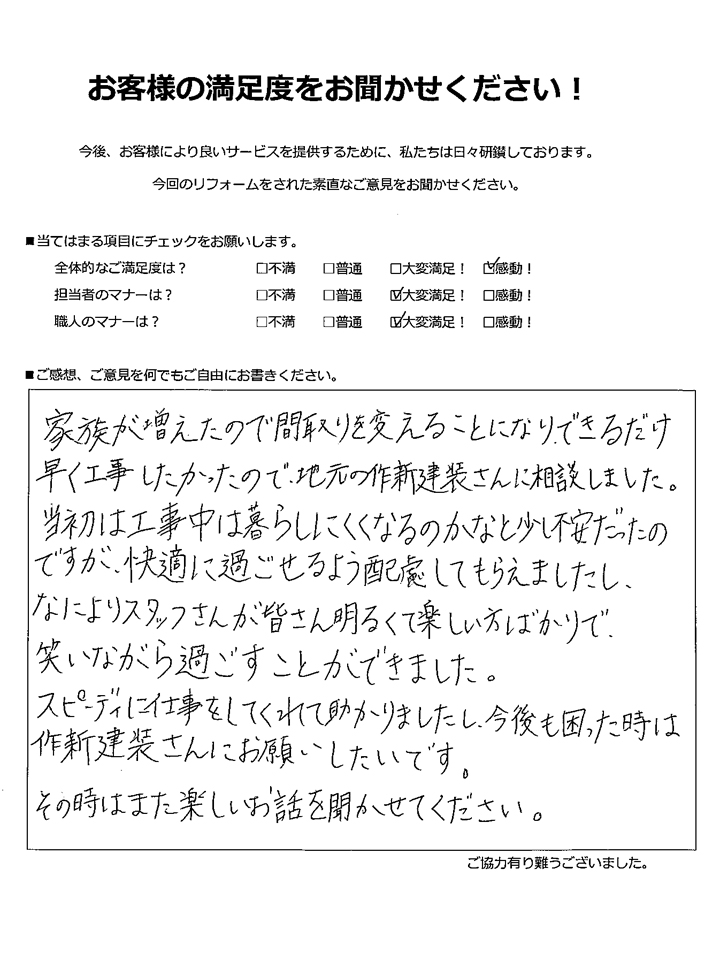 お客様の満足度をお聞かせください！
今後、お客様により良いサービスを提供するために、私たちは日々研鑽しております。
今回のリフォームをされた素直なご意見をお聞かせください。
■当てはまる項目にチェックをお願いします。
全体的なご満足度は？ □不満 □普通 □大変満足！ ☑感動！
担当者のマナーは？ □不満 □普通 ☑大変満足！ □感動！
職人のマナーは？ □不満 □普通 ☑大変満足！ □感動！
■ご感想、ご意見を何でもご自由にお書きください。
家族が増えたので間取りを変えることになり、できるだけ
早く工事したかったので、地元の作新建装さんに相談しました。
当初は工事中は暮らしにくくなるのかなと少し不安だったの
ですが、快適に過ごせるよう配慮してもらえましたし、
なによりスタッフさんが皆さん明るくて楽しい方ばかりで、
笑いながら過ごすことができました。
スピーディに仕事をしてくれて助かりましたし、今後も困った時は
作新建装さんにお願いしたいです。
その時はまた楽しいお話を聞かせてください。
ご協力有り難うございました。